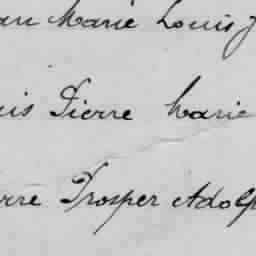 an Marie Louis J
is Pierre Marie
rre Prosper Adolp